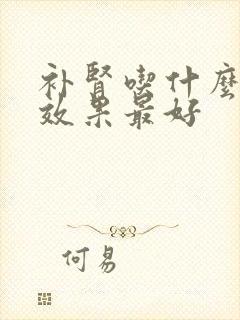 补肾喫什麽
效果最好
何易